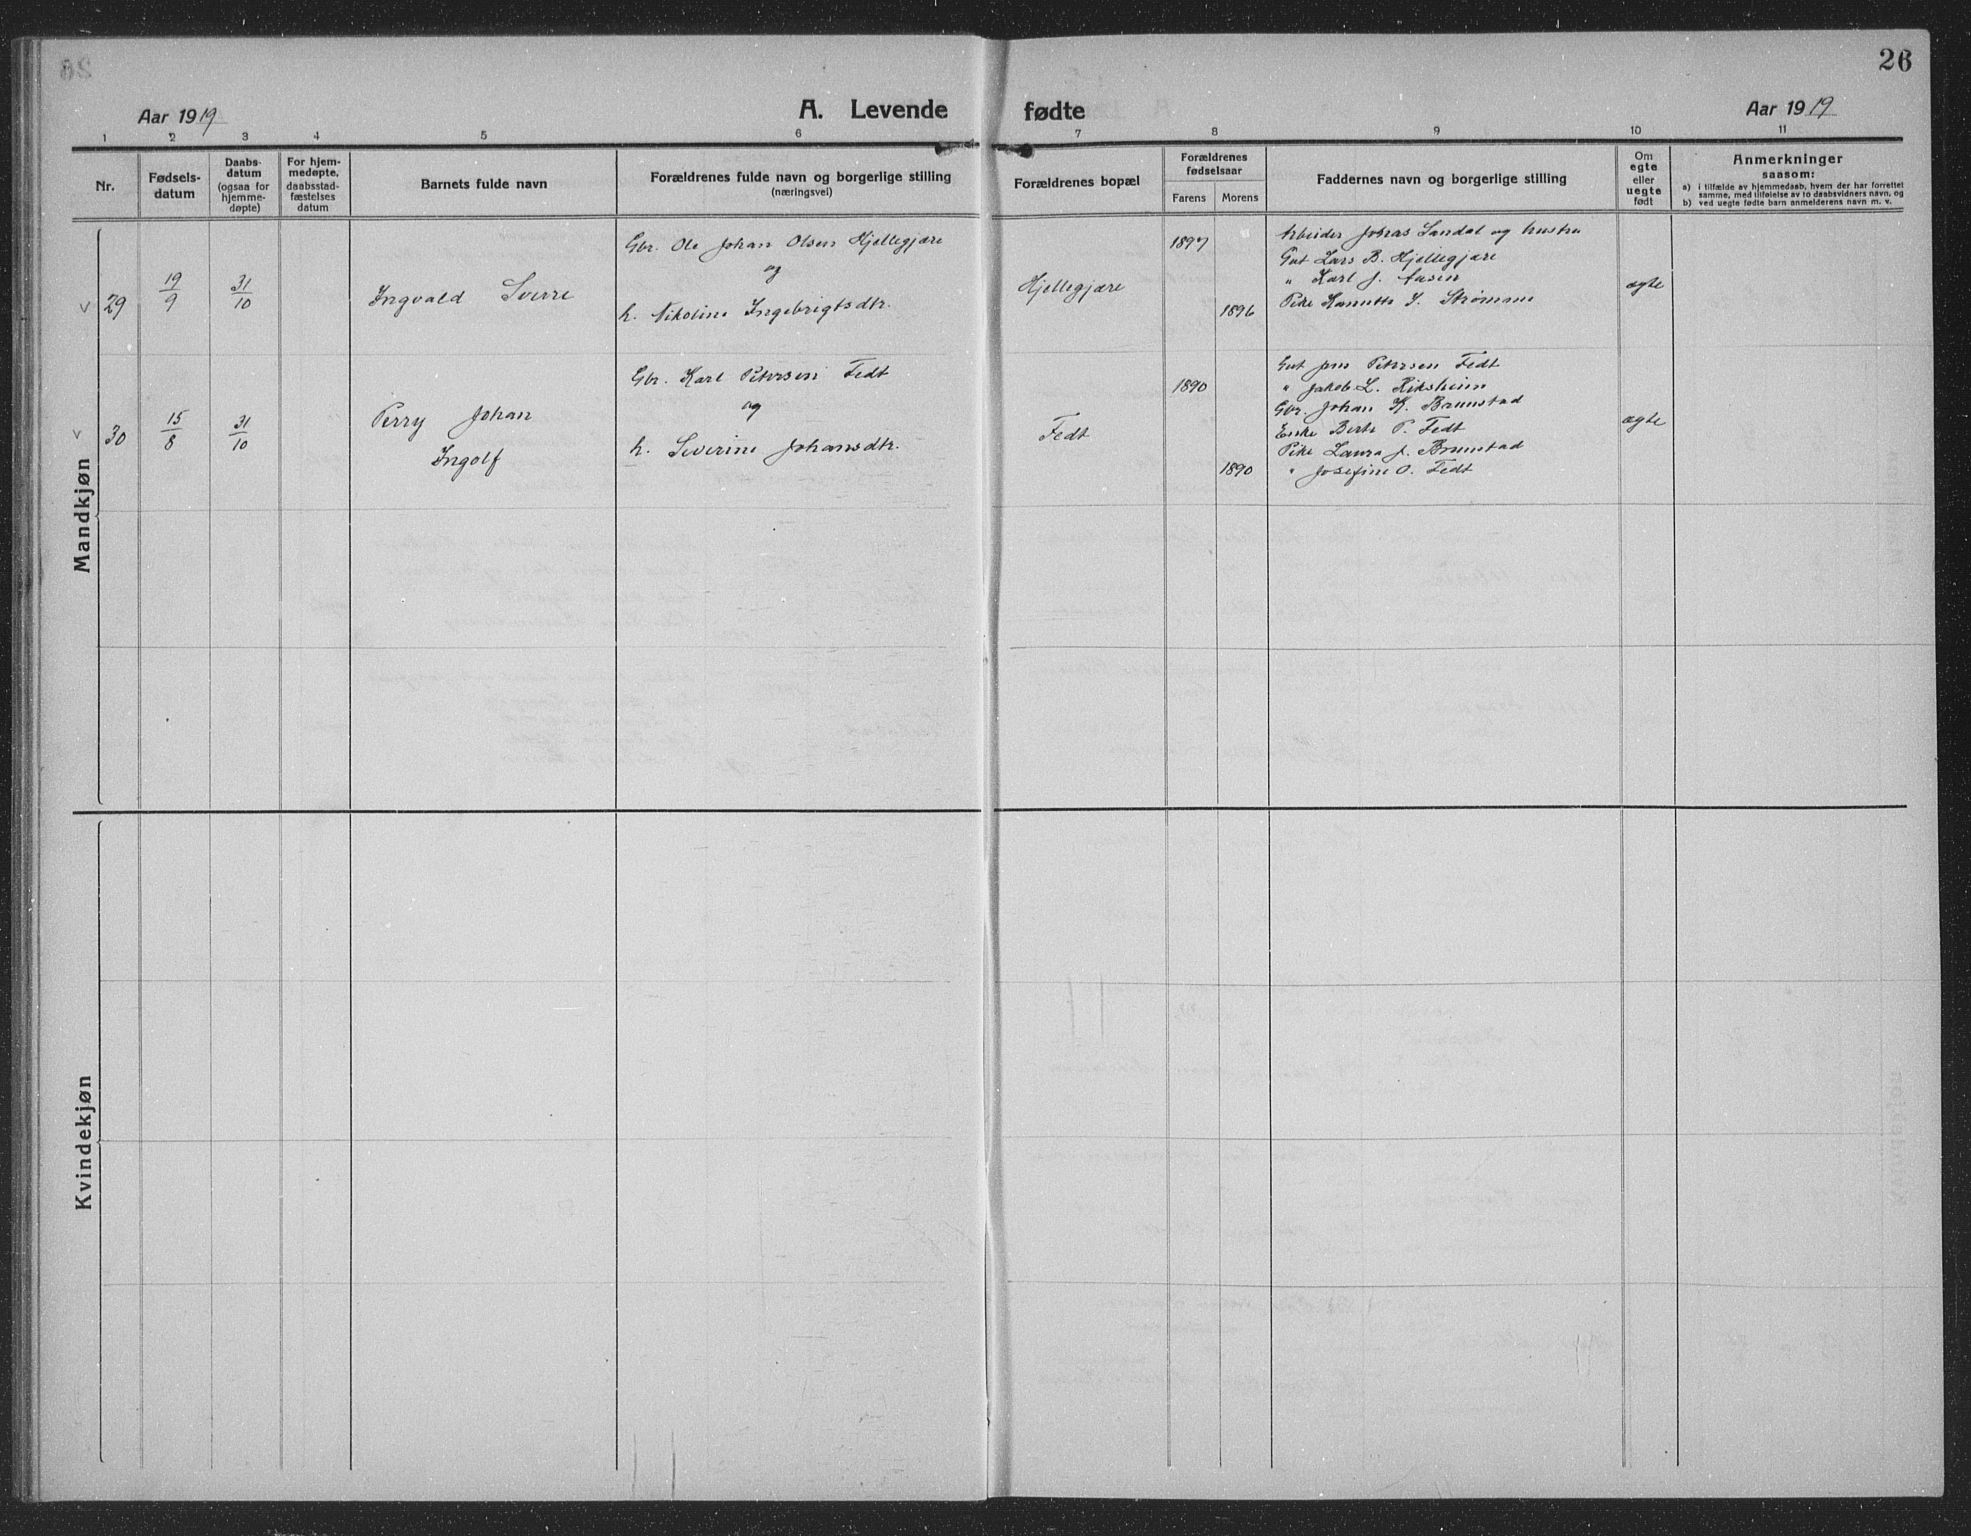 26
Aar 1919
A. Levende fødte
Aar 1919
1 2 3 4 5 6 7 8 9 10 11
Nr.
Fødsels-
datum
Daabs-
datum
(ogsaa for
hjemme-
døpte)
For hjem-
medøpte,
daabsstad-
fæstelses
datum
Barnets fulde navn
Forældrenes fulde navn og borgerlige stilling
(næringsvei)
Forældrenes bopæl
Forældrenes
fødselsaar
Farens Morens
Faddernes navn og borgerlige stilling
Om
egte
eller
uegte
født
Anmerkninger
saasom:
a) i tilfælde av hjemmedaab, hvem der har forrettet
samme, med tilføielse av to daabsvidners navn, og
b) ved uegte fødte barn anmelderens navn m. v.
Mandkjøn
29
19/9
31/10
Ingvald Sverre
Gbr. Ole Johan Olsen Hjellegjære
og
h. Nikoline Ingebrigtsdtr.
Hjellegjære
1897
1896
Arbeider Johas Sandal og hustru
Gut Lars B. Hjellegjære
" Karl J. Aasen
Pike Hanutte I. Strømme
ægte
30
15/8
31/10
Perry Johan
Ingolf
Gbr. Karl Petersen Fedt
og
h. Severine Johansdtr.
Fedt
1890
1890
Gut Jens Petersen Fedt
" Jakob L. Riksheim
Gbr. Johan K. Brunstad
Enke Berte P. Fedt
Pike Laura J. Brunstad
" Josefine O. Fedt
ægte
Kvindekjøn